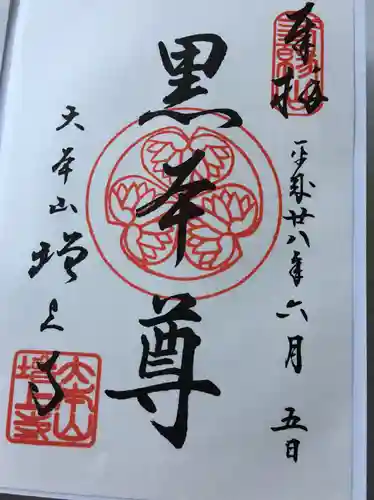 奉拝
平成廿八年六月五日
黒本尊
大本山増上寺
大本山
増上寺